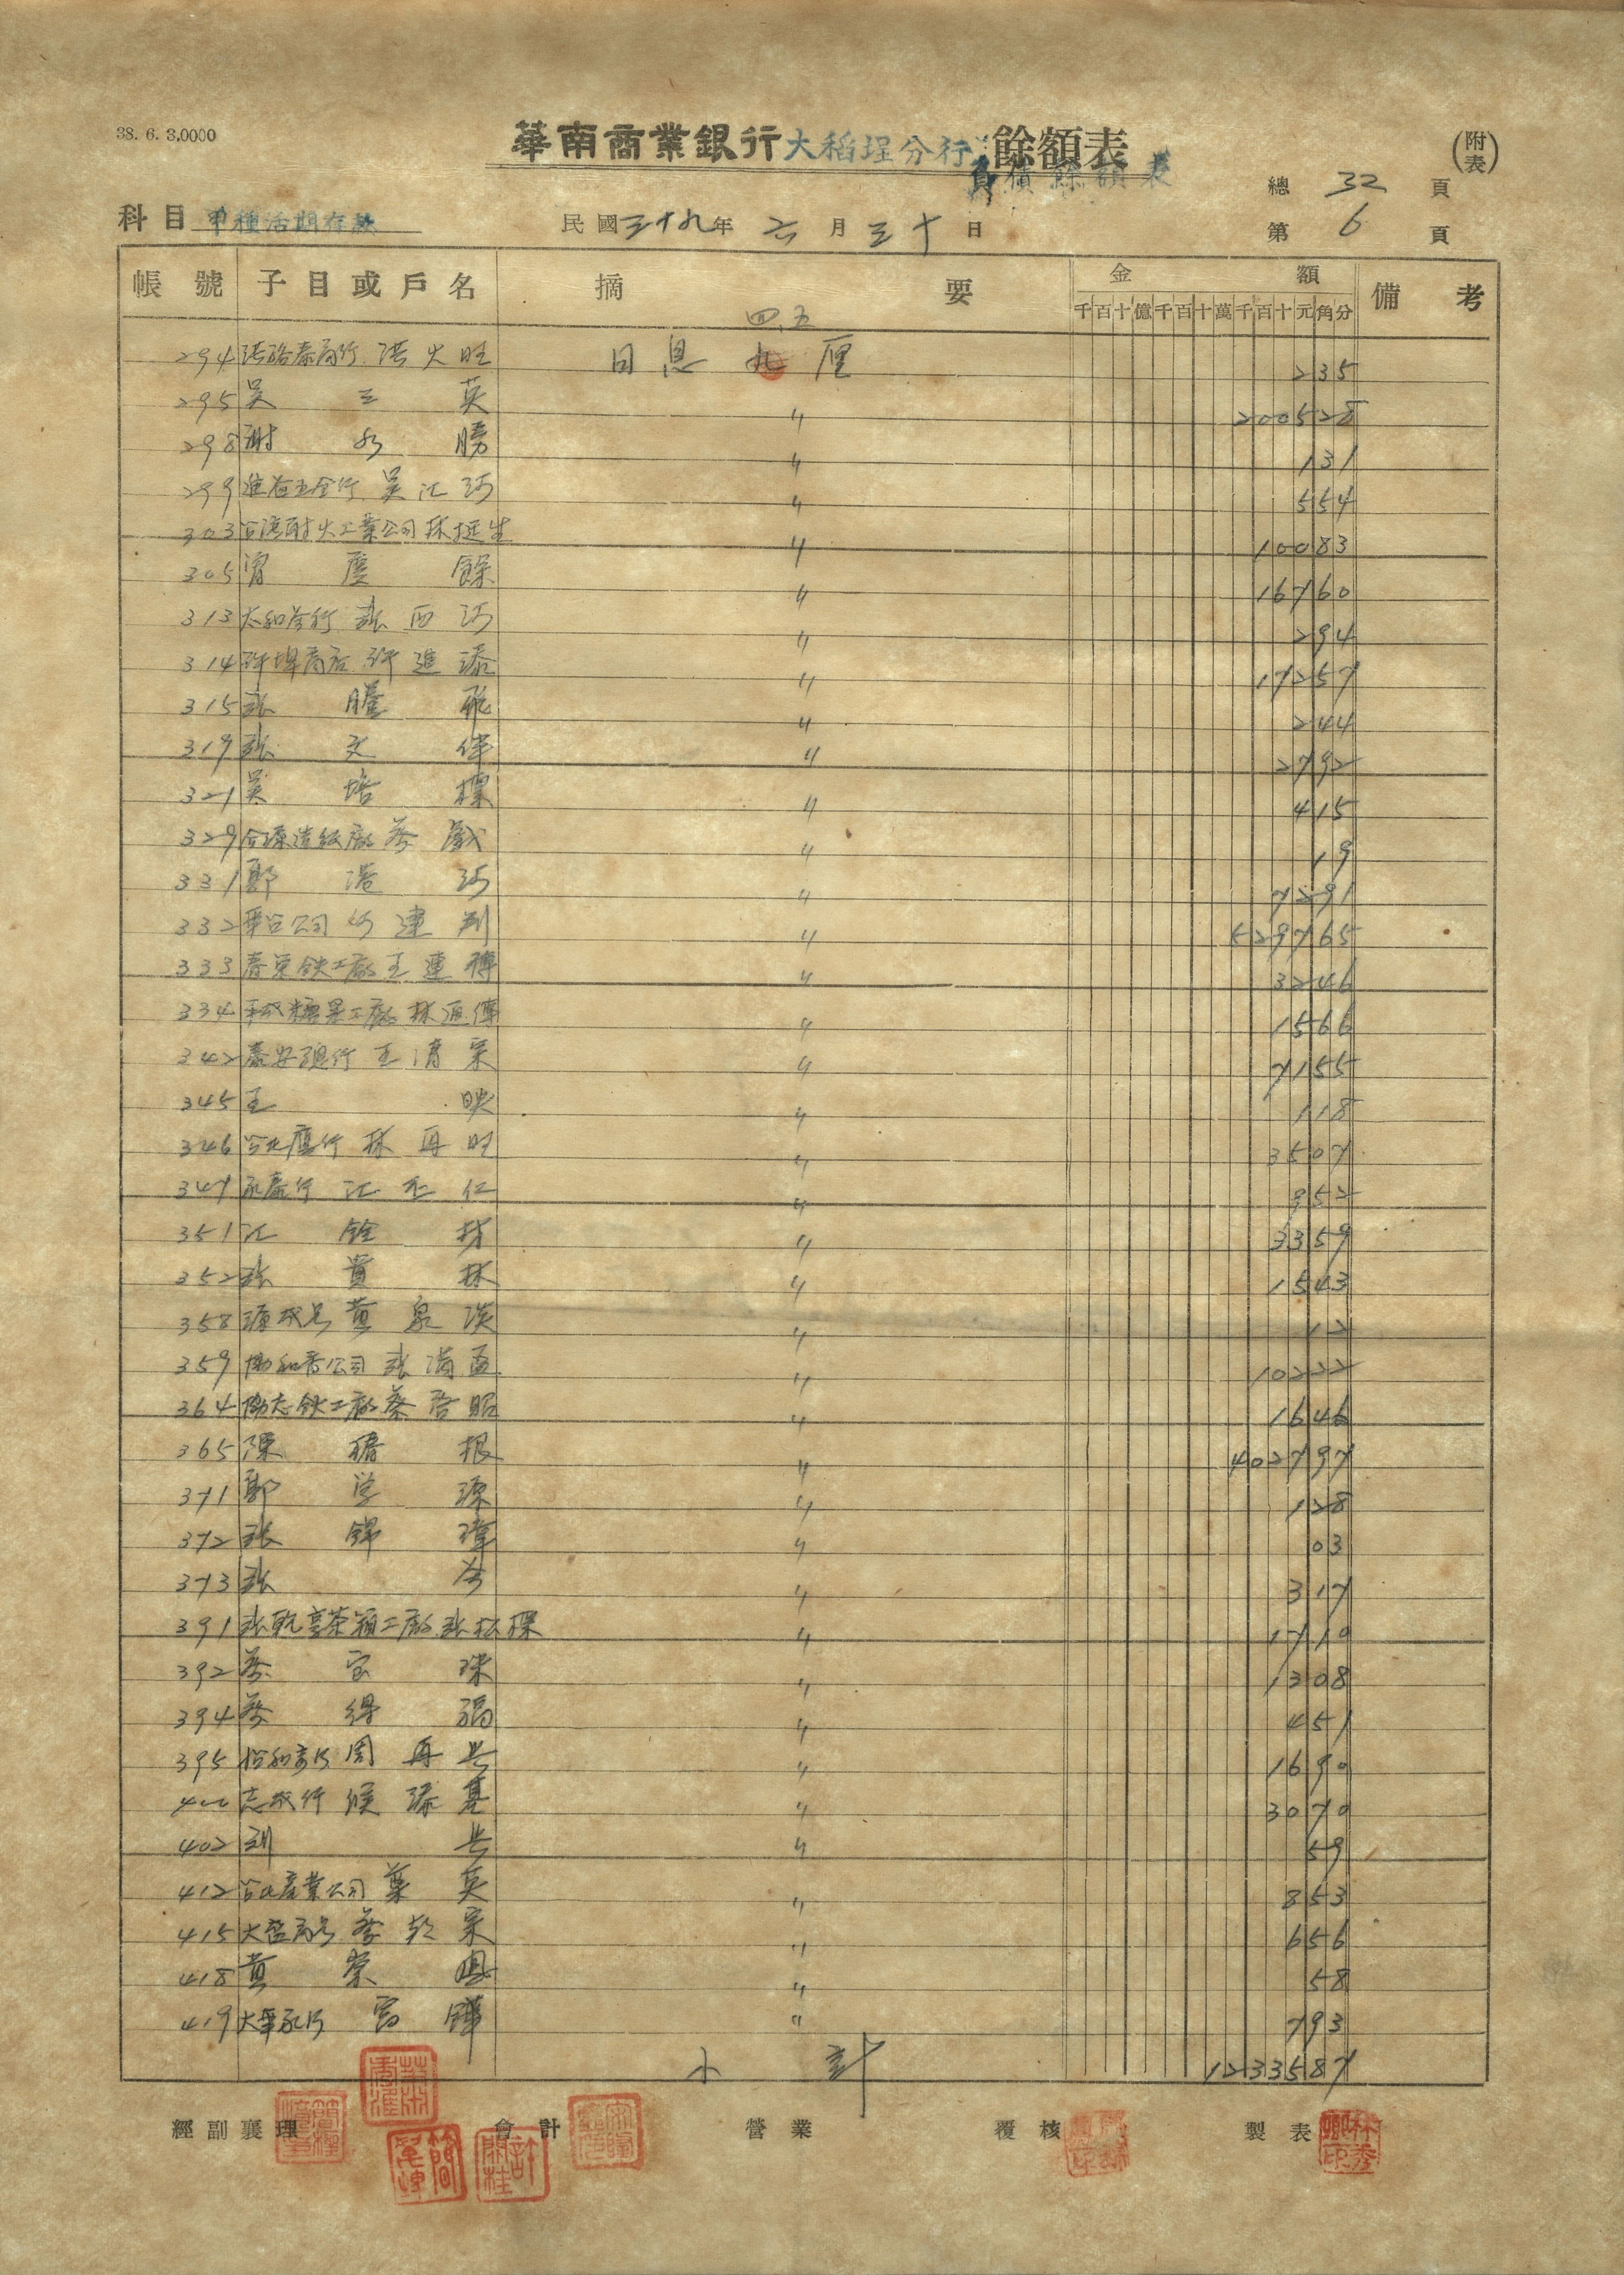 38. 6. 3,0000
華南商業銀行大稻埕分行 餘額表
負債餘額表
(附表)
總 32 頁
科目 甲種活期存款 民國三十九年 六月三十日
第 6 頁
帳號 子目或戶名 摘要 金額 備考
千百十億千百十萬千百十元角分
四.五
294 洪裕泰商行 洪火旺 日息 九厘 235
295 吳三英 〃 200528
298 謝水勝 〃 131
299 吳江河 〃 554
303 台湾耐火工業公司 林挺生 〃 10083
305 曾慶餘 〃 16760
313 太和茶行 張西河 〃 294
314 許埤商店 許進添 〃 17257
315 張騰飛 〃 244
319 張文俾 〃 2792
321 吳培標 〃 415
329 合源造紙廠 蔡戲 〃 19
331 郭港河 〃 7291
332 華台公司 何連 〃 529765
333 春榮鉄工廠 王連 〃 3246
334 糖果工廠 林通傳 〃 1566
342 泰安行 王清宗 〃 7155
345 王映 〃 118
346 台北鷹行 林再旺 〃 3507
347 永泰行 江丕仁 〃 952
351 江銓材 〃 3359
352 張貴林 〃 1543
358 源成号 黃泉淡 〃 12
359 協和香公司 張滿盈 〃 10222
364 協志鉄工廠 蔡啓昭 〃 1646
365 陳根 〃 402797
371 郭学源 〃 128
372 張錦 〃 03
373 張 〃 317
391 張乾亨茶箱工廠 張松標 〃 1710
392 蔡宝珠 〃 1308
394 蔡得福 〃 451
395 周再興 〃 1690
400 志成行 候添基 〃 3070
402 劉興 〃 59
412 台北產業公司 葉英 〃 853
415 大盈商号 蔡宗 〃 656
418 黃榮 〃 58
419 〃 793
小計 1233587
經副襄理 會計 營業 覆核 製表